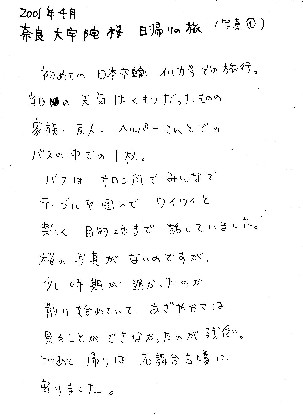 2001年4月
奈良 大宇陀 桜 日帰りの旅 (写真①)
初めての 日本 での旅行。
当日 の 天気 は くもり だったものの
家族・友人・ヘルパーさんとの
バスの中での1枚。
バスは サロン席で みんなで
テーブルを囲んで ワイワイと
楽しく 目的地まで 話していました。
桜の写真がないのですが、
少し時期が 遅かったのか
散り始めていて あざやかでは
見ることができなかったのが残念。
帰りは 古墳に
寄りました。